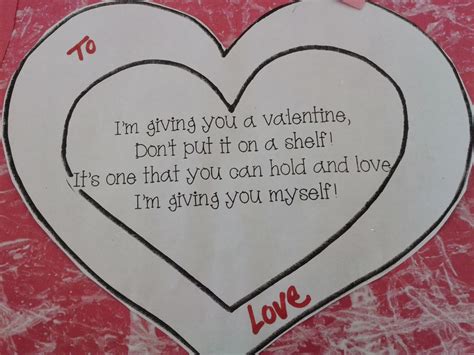 To
I'm giving you a valentine,
Don't put it on a shelf!
It's one that you can hold and love
I'm giving you myself!
Love